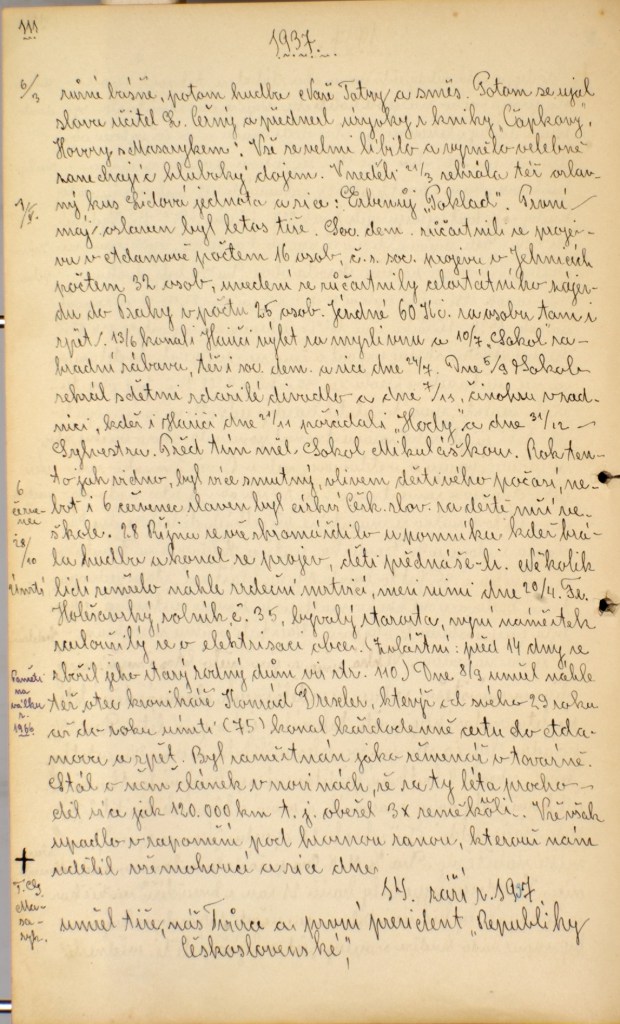 111
1937.
6/3 různé básně, potom hudba Naše Tatry a směs. Potom se ujal
slova učitel L. Černý a přednesl úryvky z knihy „Čapkovy“,
Hovory s Masarykem“. Vše se velmi líbilo a vyznělo velebně
zanechajíc hluboký dojem. V neděli 21/3 sehrála též oslav-
ný kus Lidová jednota a sice: Erbenův „Poklad“. První
1/5. máj oslaven byl letos tiše. Soc. dem. súčastnili se proje-
vu v Adamově počtem 16 osob, č. s. soc. projevu v Jehnicích
počtem 32 osob, uvedení se súčastnily celostátního zájez-
du do Prahy v počtu 25 osob. Jízdné 60 Kč. za osobu tam i
zpět. 13/6 konali Hasiči výlet za myslivnu a 10/7 „Sokol“ za-
hradní zábava, též i soc. dem. a sice dne 24/7. Dne 5/9 Sokol
sehrál s dětmi zdařilé divadlo a dne 7/11, činohru v rad-
nici, kdež i Hasiči dne 21/11 pořádali „Hody“ a dne 31/12 —
Sylvestra. Před tím měl Sokol Mikulášskou. Rok ten-
to jak vidno, byl více smutný, vlivem deštivého počasí, ne-
6 červe- nec boť i 6 červenec slaven byl církví Česk. slov. za deště mší ve
28/10 škole. 28 Října se vše shromáždilo u pomníku kdež hrá-
la hudba a konal se projev, děti přednáše-li. Několik
Úmrtí lidí zemřelo náhle srdeční mrtvicí, mezi nimi dne 20/4. Fr.
Holešovský rolník č. 35, bývalý starosta, nyní náměstek
zasloužilý se o elektrisaci obce. (Zvláštní: před 14 dny se
sbořil jeho starý rodný dům viz str. 110) Dne 8/3 umřel náhle
Paměti na válku r. 1966 též otec kronikáře Konrád Drexler, kterýž od svého 29 roku
až do roku úmrtí (75) konal každodenně cestu do Ada-
mova a zpět. Byl zaměstnán jako řemenář v továrně.
Stál o něm článek v novinách, že za ty léta procho-
dil více jak 120.000 km t. j. obešel 3x zeměkouli. Vše však
upadlo v zapomění pod hroznou ranou, kterouž nám
+ udělil všemohoucí a sice dne
14. září r. 1937
T. G. Ma- sa- ryk. umřel tiše, náš Tvůrce a první president „Republiky
Československé“,